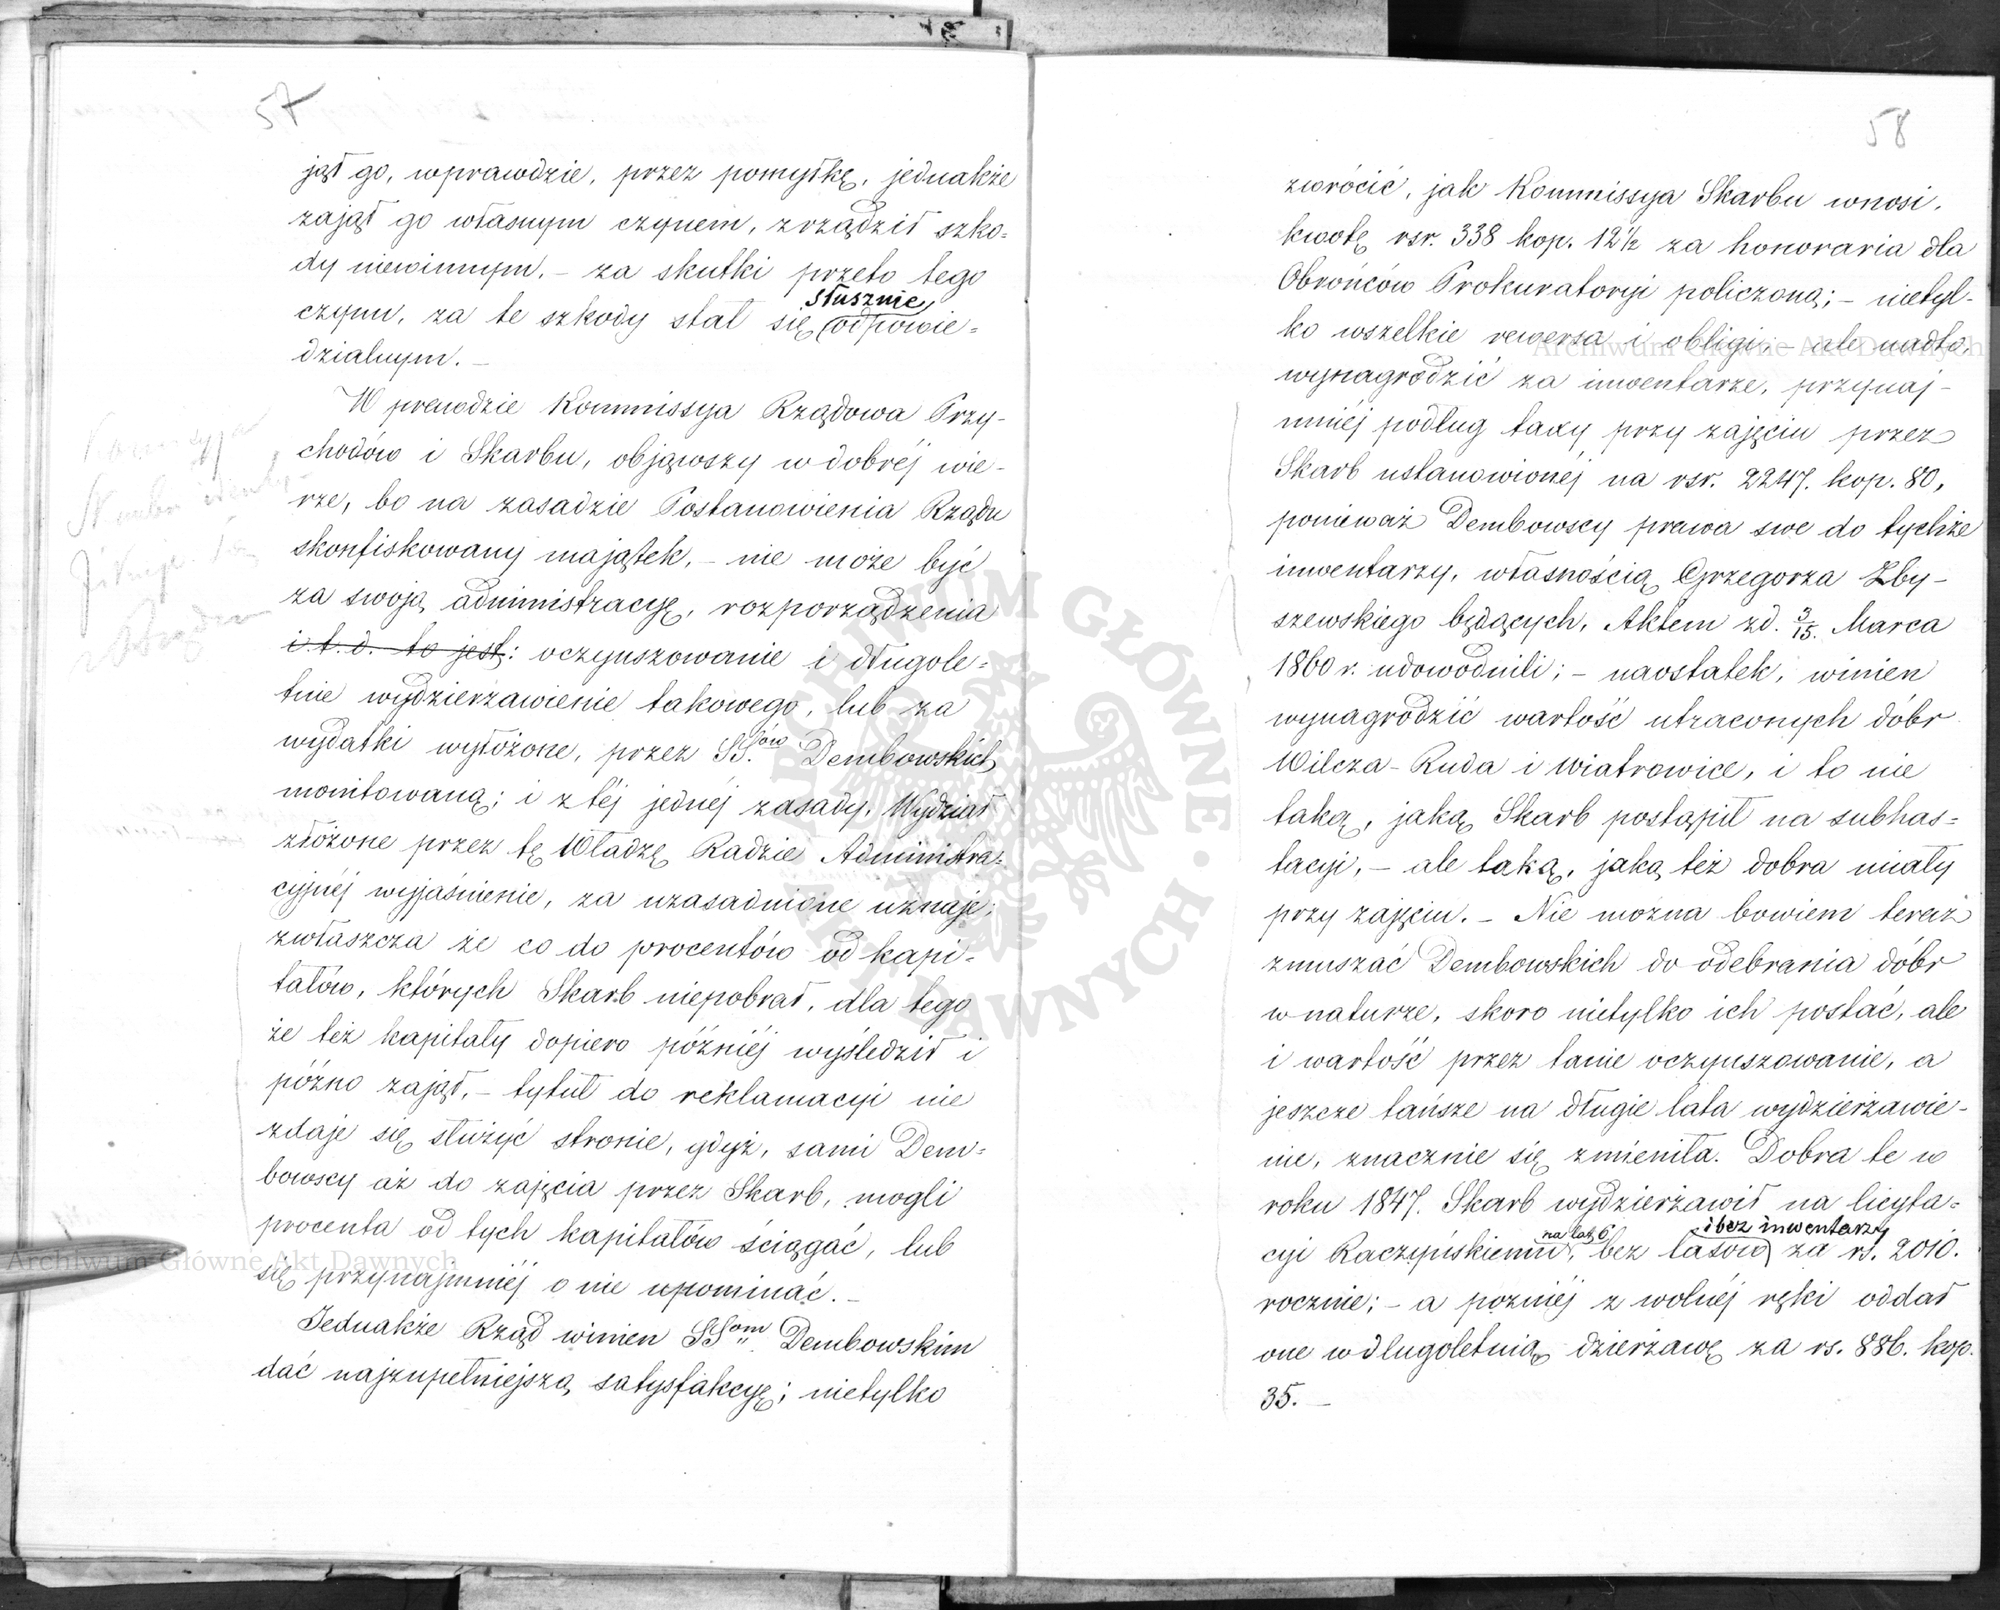 57
jął go, wprawdzie, przez pomyłkę, jednakże
zajął go własnym czynem, zrządził szko=
dy niewinnym, – za skutki przeto tego
słusznie
czynu, za te szkody stał się odpowie=
dzialnym. –
W prawdzie Kommissya Rządowa Przy-
chodów i Skarbu, objąwszy w dobréj wie-
rze, bo na zasadzie Postanowienia Rządu
skonfiskowany majątek, – nie może być
za swoją administracyę, rozporządzenia
i t. d. to jest: oczynszowanie i długole=
tnie wydzierżawienie takowego, lub za
wydatki wyłożone, przez SS.ów Dembowskich
monitowaną; i z téj jednéj zasady, Wydział
złożone przez tę Władzę Radzie Administra=
cyjnéj wyjaśnienie, za uzasadnione uznaje;
zwłaszcza że co do procentów od kapi=
tałów, których Skarb niepobrał, dla tego
że też kapitały dopiero późniéj wyśledził i
późno zajął, – tytuł do reklamacyi nie
zdaje się służyć stronie, gdyż, sami Dem=
bowscy aż do zajęcia przez Skarb, mogli
procenta od tych kapitałów ściągać, lub
się przynajmniéj o nie upominać. –
Jednakże Rząd winien SSom Dembowskim
dać najzupełniejszą satysfakcyę; nietylko
Kommissyja
Skarbu
58
zwrócić, jak Kommissya Skarbu wnosi,
kwotę rsr. 338 kop. 12½ za honoraria dla
Obrońców Prokuratoryi policzoną; – nietyl-
ko wszelkie rewersa i obligi, – ale nadto,
wynagrodzić za inwentarze, przynaj-
mniéj podług taxy przy zajęciu przez
Skarb ustanowionéj na rsr. 2247. kop. 80,
ponieważ Dembowscy prawa swe do tychże
inwentarzy, własnością Grzegorza Zby-
szewskiego będących, Aktem z d. 3/15. Marca
1860 r. udowodnili; – naostatek, winien
wynagrodzić wartość utraconych dóbr
Wilcza-Ruda i Wiatrowice, i to nie
taką, jaką Skarb postąpił na subhas=
tacyi, – ale taką, jaką też dobra miały
przy zajęciu. – Nie można bowiem teraz
zmuszać Dembowskich do odebrania dóbr
w naturze, skoro nietylko ich postać, ale
i wartość przez tanie oczynszowanie, a
jeszcze tańsze na długie lata wydzierżawie-
nie, znacznie się zmieniła. Dobra te w
roku 1847. Skarb wydzierżawił na licyta=
na lat 6 i bez inwentarzy
cyi Raczyńskiemu, bez lasów za rs. 2010.
rocznie; – a pozniéj z wolnéj ręki oddał
one w długoletnią dzierżawę za rs. 886. kop.
35. –
Archiwum Główne Akt Dawnych
Archiwum Główne Akt Dawnych
ARCHIWUM GŁÓWNE · AKT DAWNYCH ·